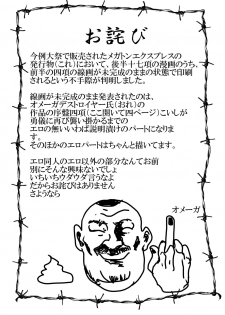 お詫び
今例大祭で販売されたメガトンエクスプレスの
発行物(これ)において、後半十七項の漫画のうち、
前半の四項の線画が未完成のままの状態で印刷
されるという不手際が判明しました。
線画が未完成のまま発表されたのは、
オメーガデストロイヤー氏(おれ)の
作品の序盤四項(ここ開いて四ページ)こいしが
勇儀に再び襲い掛かるまでの
エロの無いいわば説明漬けのパートになりま
す。
そのほかのエロパートはちゃんと描いてます。
エロ同人のエロ以外の部分なんてお前
別にそんな興味ないでしょ
いちいちウダウダ言うなよ
だからお詫びはありません
さようなら
オメーガ